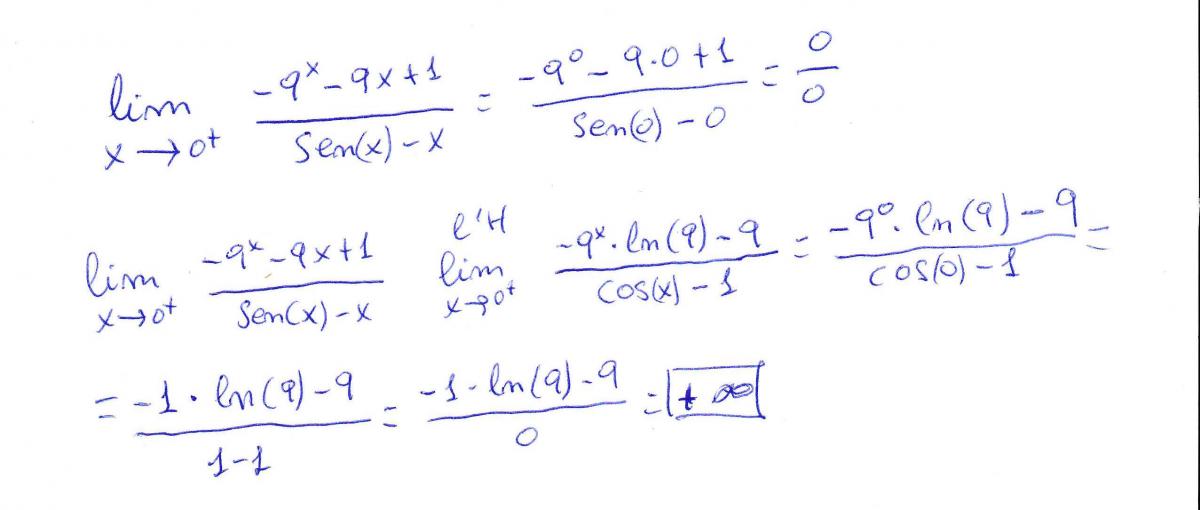 lim x→0⁺ (-9ˣ - 9x + 1)/(Sen(x) - x) = (-9⁰ - 9·0 + 1)/(Sen(0) - 0) = 0/0
lim x→0⁺ (-9ˣ - 9x + 1)/(Sen(x) - x) l'H lim x→0⁺ (-9ˣ · ln(9) - 9)/(cos(x) - 1) = (-9⁰ · ln(9) - 9)/(cos(0) - 1) =
= (-1 · ln(9) - 9)/(1 - 1) = (-1 · ln(9) - 9)/0 = +∞